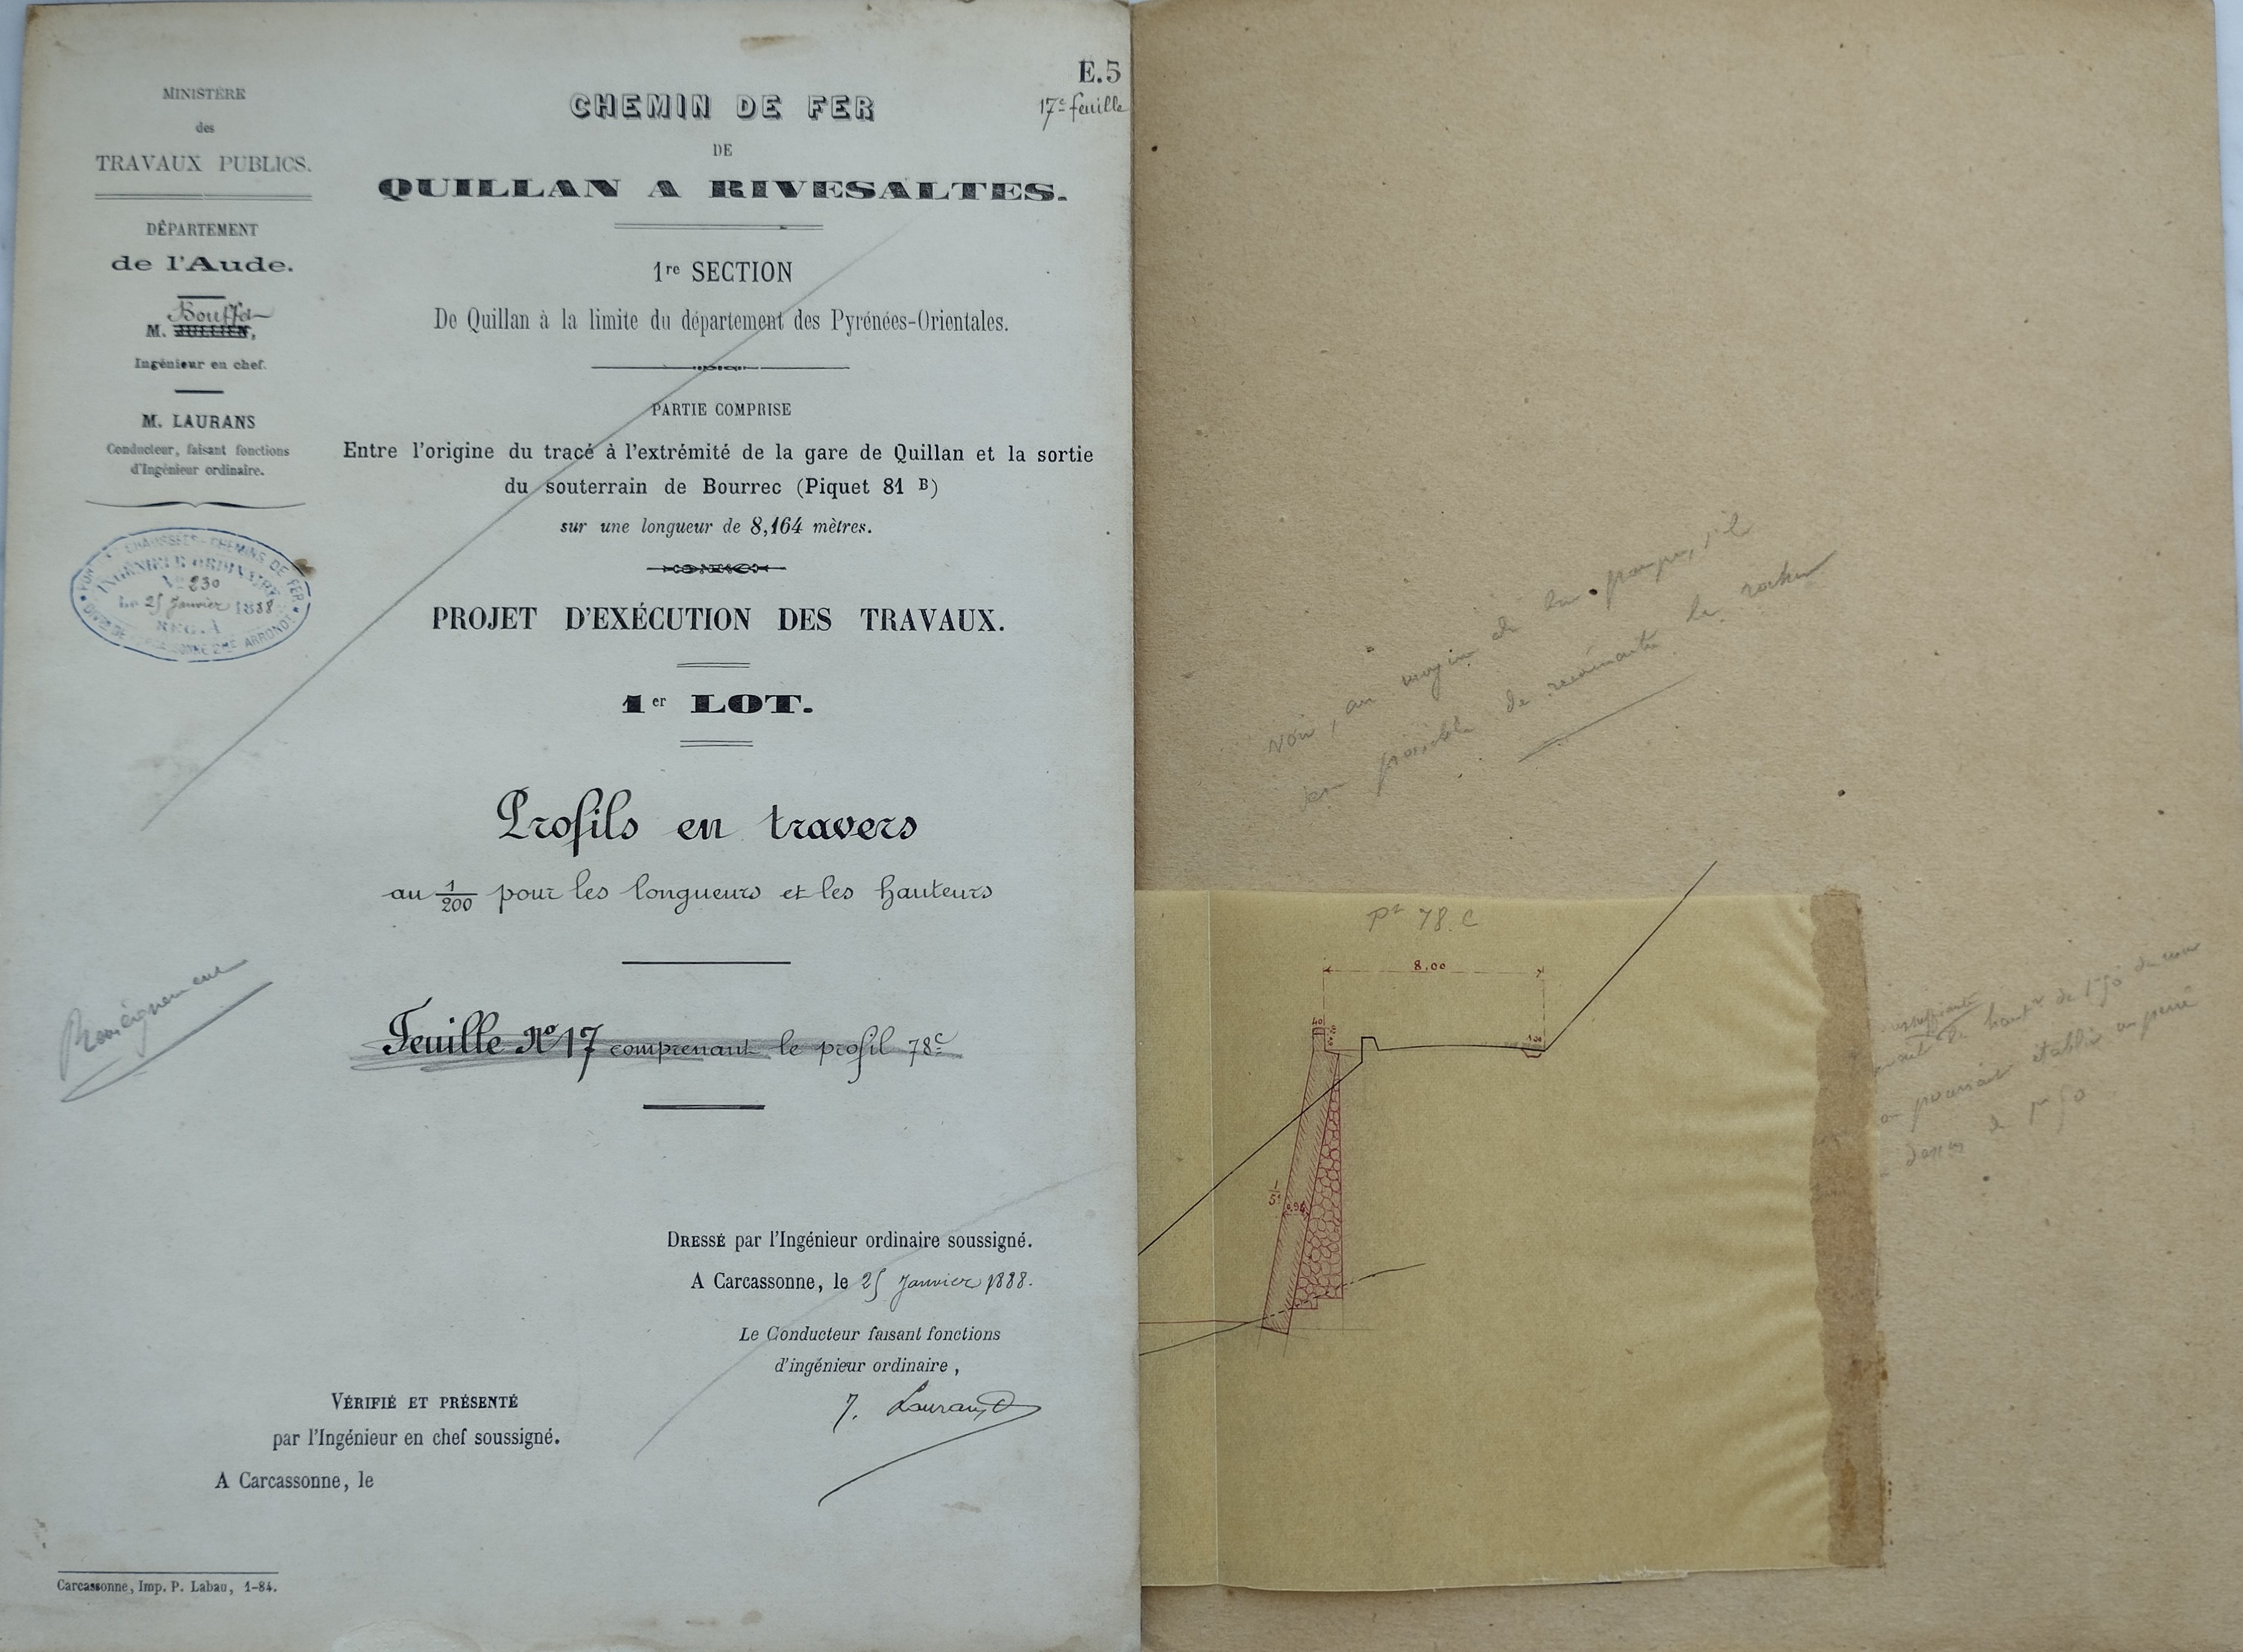 MINISTÈRE
des
TRAVAUX PUBLICS.
DÉPARTEMENT
de l'Aude.
Bouffet
M. JULLIEN,
Ingénieur en chef.
M. LAURANS
Conducteur, faisant fonctions
d'Ingénieur ordinaire.
CHAUSSÉES - CHEMINS DE FER
INGÉNIEUR ORDINAIRE
N° 230
Le 25 Janvier 1888
ARRONDT
Renseignement
E.5
17e feuille
CHEMIN DE FER
DE
QUILLAN A RIVESALTES.
1re SECTION
De Quillan à la limite du département des Pyrénées-Orientales.
PARTIE COMPRISE
Entre l'origine du tracé à l'extrémité de la gare de Quillan et la sortie
du souterrain de Bourrec (Piquet 81 B)
sur une longueur de 8,164 mètres.
PROJET D'EXÉCUTION DES TRAVAUX.
1er LOT.
Profils en travers
au 1/200 pour les longueurs et les hauteurs
Feuille No 17 comprenant le profil 78c
DRESSÉ par l'Ingénieur ordinaire soussigné.
A Carcassonne, le 25 Janvier 1888.
Le Conducteur faisant fonctions
d'ingénieur ordinaire,
J. Laurans
VÉRIFIÉ ET PRÉSENTÉ
par l'Ingénieur en chef soussigné.
A Carcassonne, le
Carcassonne, Imp. P. Labau, 1-84.
Voir, au moyen de la s'il
possible de le rocher
Pl 78.C
8.00
40
1.00
1/5
0.94
de haut de 1m50 du mur
on pourrait établir un perré
de 1m50